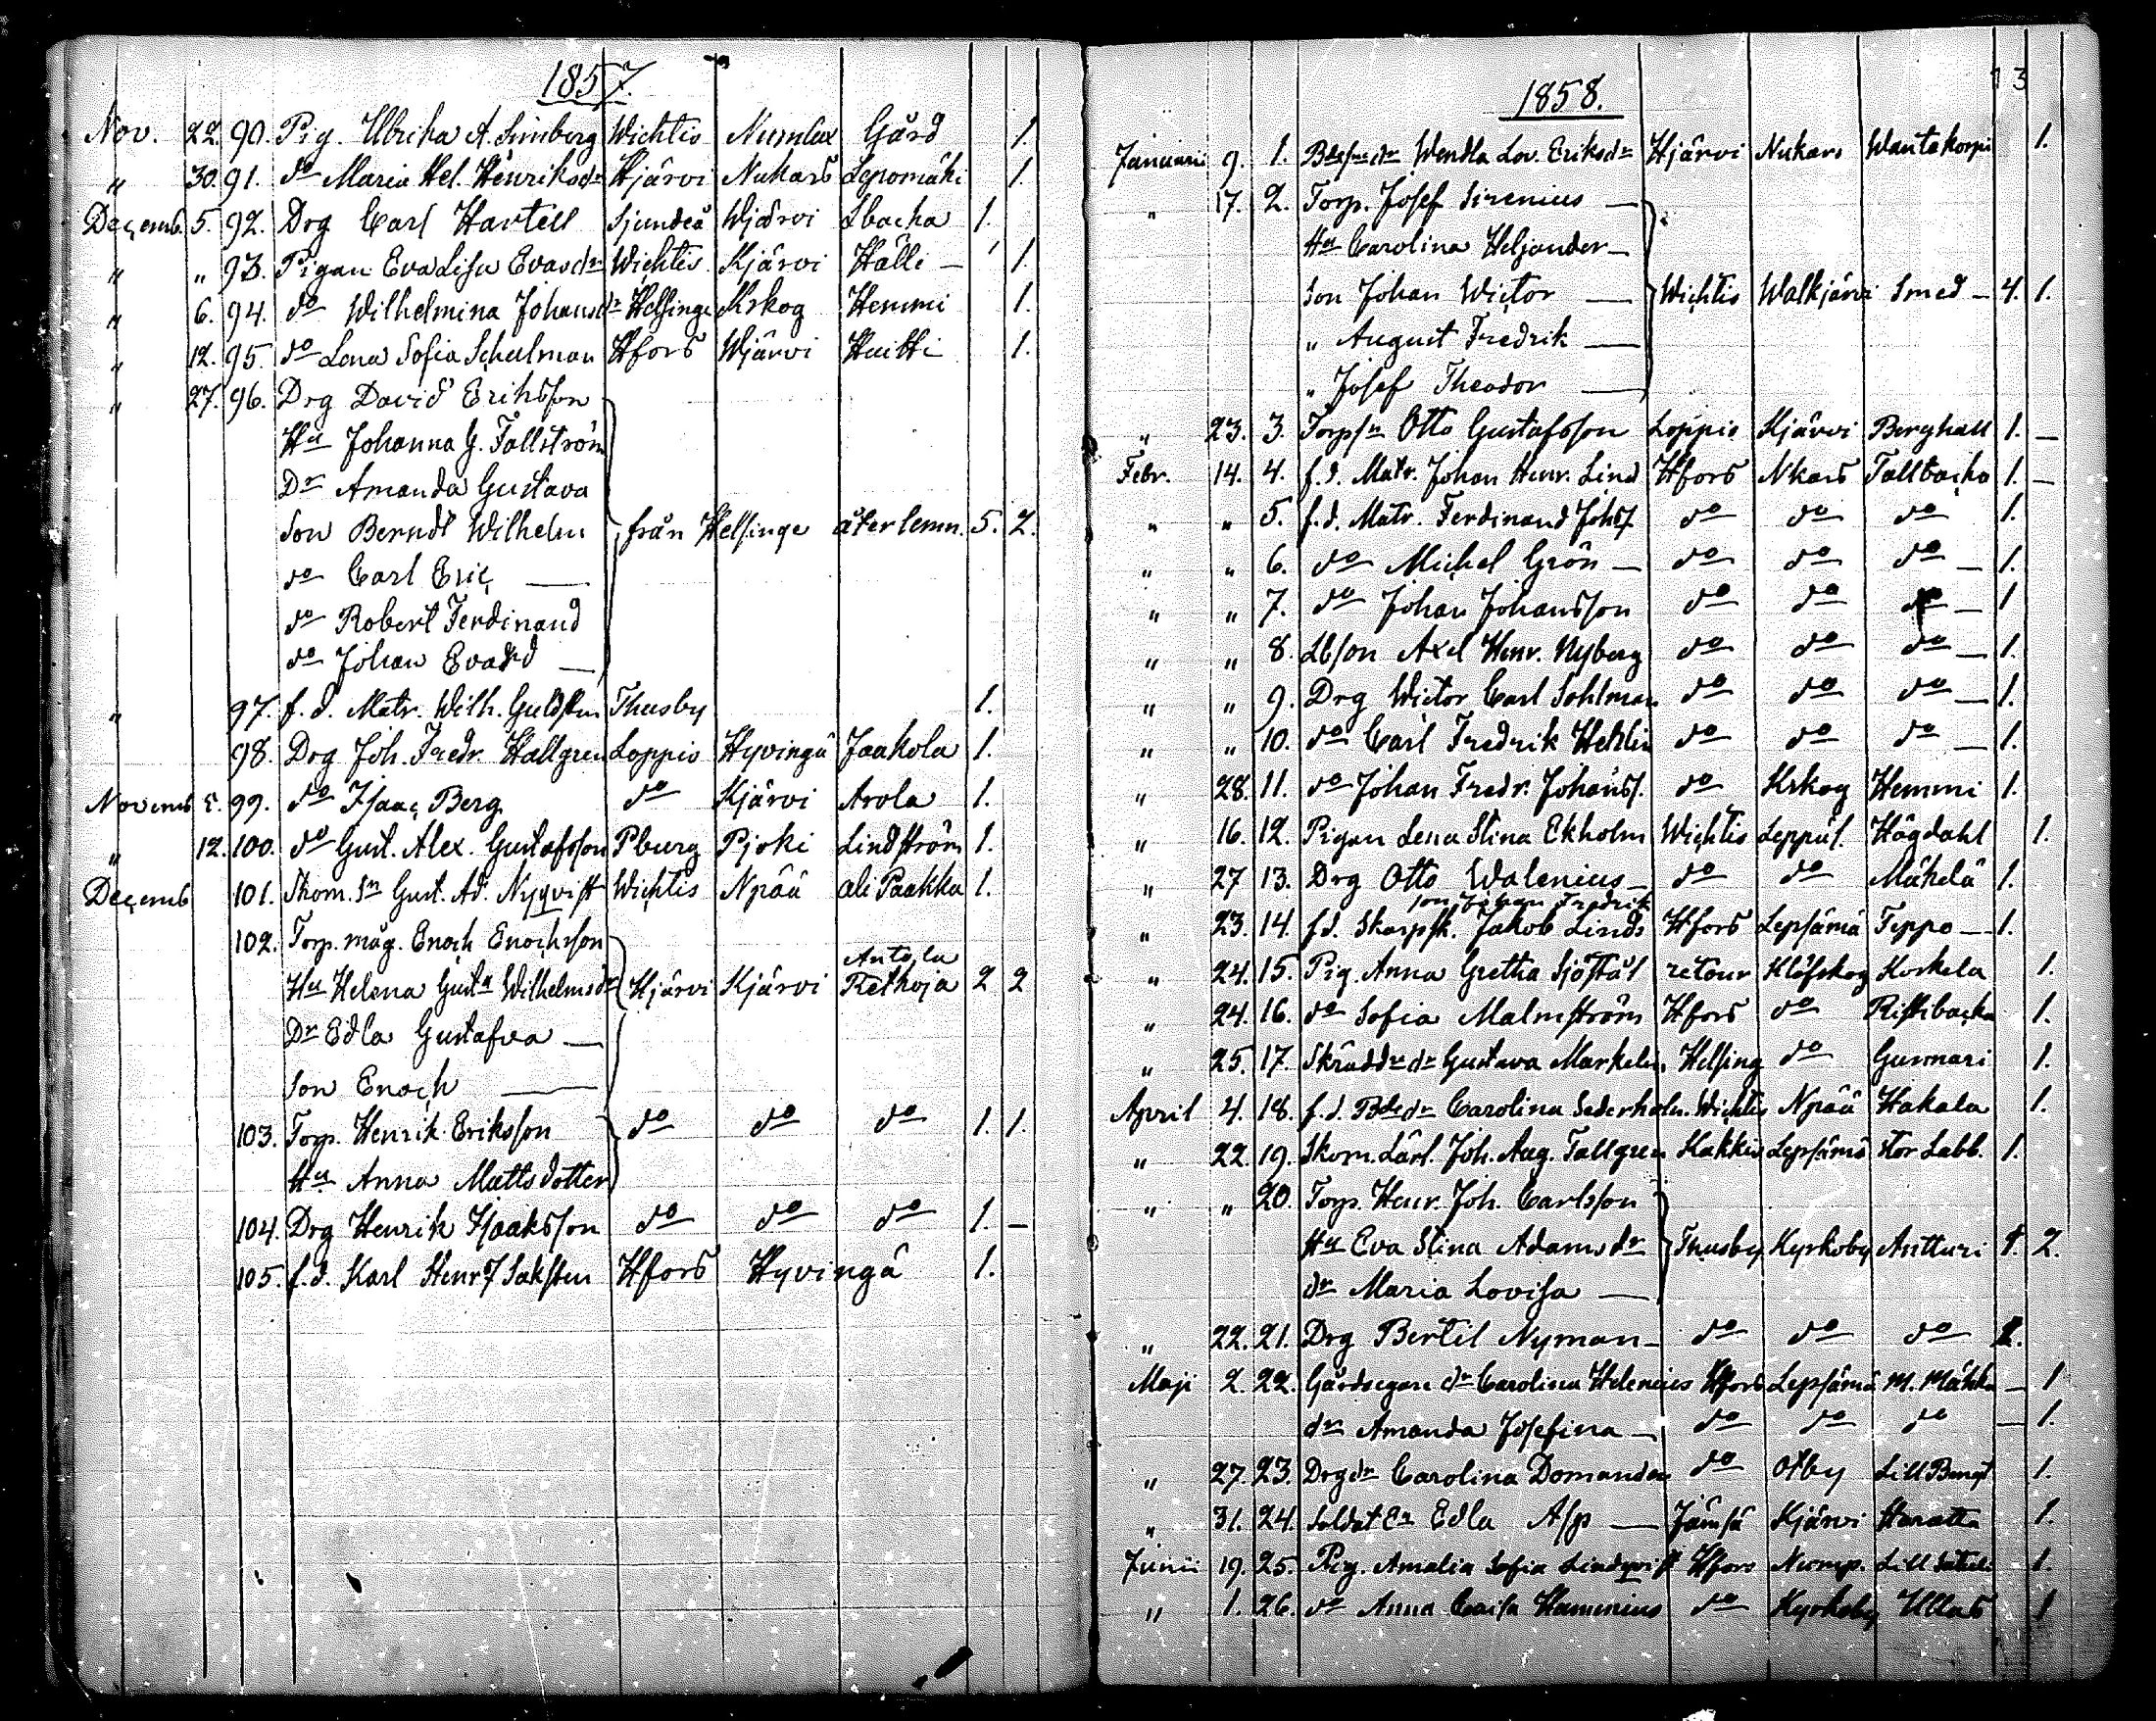 1857.
Nov. 22. 90. Pig. Ulrika A. Limberg Wichtis Numlax Gård 1.
" 30. 91. do Maria Hel. Henriksdr Hjärvi Nukars Lepomäki 1.
Decemb. 5. 92. Drg Carl Hartell Sjundeå Wjärvi Lbacka 1.
" " 93. Pigan Eva Lisa Evasdr Wichtis Kjärvi Hälli — 1.
" 6. 94. do Wilhelmina Johansdr Helsinge Krkog Hemmi 1.
" 12. 95. do Lena Sofia Schulman Hfors Wjärvi Huitti 1.
" 27. 96. Drg David Eriksson
Hu Johanna G. Fallström
Dr Amanda Gustava
Son Berndt Wilhelm från Helsinge återlemn. 5. 2.
do Carl Eric —
do Robert Ferdinand
do Johan Evard —
" 97. f. d. Matr. Wilh. Guldsten Thusby 1.
98. Drg Joh. Fredr. Hallgren Loppis Hyvingä Jaakola 1.
Novemb 5. 99. do Isaac Berg do Kjärvi Arola 1.
" 12. 100. do Gust. Alex. Gustafsson Pburg Pjoki Lindström 1.
Decemb 101. Skom. Sn Gust. Ad. Nyqvist Wichtis Npää ali Paakka 1.
102. Torp. måg. Enoch Enochsson
Antola
Hu Helena Gusta Wilhelmsdr Hjärvi Kjärvi Rethoja 2 2
Dr Edla Gustafva —
Son Enoch —
103. Torp. Henrik Eriksson do do do 1. 1.
Hu Anna Mattsdotter
104. Drg Henrik Isaaksson do do do 1. —
105. f. d. Karl Henr. Isaksten Hfors Hyvingä 1.
13
1858.
Januarii 9. 1. Wendla Lov. Eriksdr Hjärvi Nukars Wantakorpi 1.
" 17. 2. Torp. Josef Sirenius —
Hu Carolina Heljander —
Son Johan Wictor — Wichtis Walkjärvi Smed — 4. 1.
" August Fredrik —
" Josef Theodor —
" 23. 3. Torpsn Otto Gustafsson Loppis Kjärvi Berghall 1. —
Febr. 14. 4. f. d. Matr. Johan Henr. Lind Hfors Nkars Tallbacka 1. —
" " 5. f. d. Matr. Ferdinand Johs. do do do 1.
" " 6. do Michel Grön — do do do — 1.
" " 7. do Johan Johansson do do do — 1
" " 8. Lbson Axel Henr. Nyberg do do do — 1.
" " 9. Drg Wictor Carl Sohlman do do do — 1.
" " 10. do Carl Fredrik Hehlin do do do — 1.
" 28. 11. do Johan Fredr. Johanss. do Krkog Hemmi 1.
" 16. 12. Pigan Lena Stina Ekholm Wichtis Leppäl. Högdahl 1.
" 27 13. Drg Otto Walenius — do do Mäkelä 1.
son Johan Fredrik
" 23. 14. f. d. Skarpsk. Jakob Linds Hfors Lepsämä Teppo — 1.
" 24. 15. Pig. Anna Gretha Sjöstål retour Klöfskog Koskela 1.
" 24. 16. do Sofia Malmström Hfors do Ristibacka 1.
" 25. 17. Skräddrdr Gustava Markelin Helsing do Gunnari 1.
April 4. 18. f. d. Carolina Sederholm. Wichtis Npää Hakala 1.
" 22. 19. Skom. Lärl. Joh. Aug. Tallgren Kakkis Lepsämä Stor Labb. 1.
" " 20. Torp. Henr. Joh. Carlsson
Hu Eva Stina Adamsdr Thusby Kyrkoby Antturi 1. 2.
dr Maria Lovisa —
" 22. 21. Drg Bertil Nyman — do do do 1.
Maji 2. 22. Gårdsegare dr Carolina Helenius Hfors Lepsämä M. Mäkka — 1
dr Amanda Josefina — do do do — 1.
" 27. 23. Drgdr Carolina Domander do Otby Lill Bengt 1.
" 31. 24. Soldat Ea Edla Asp — Jämsä Kjärvi Haratta 1.
Junii 19. 25. Pig. Amalia Sofia Lindqvist Hfors Nump. Lill 1.
" 1. 26. do Anna Caisa Hammius do Kyrkoby Ullas 1